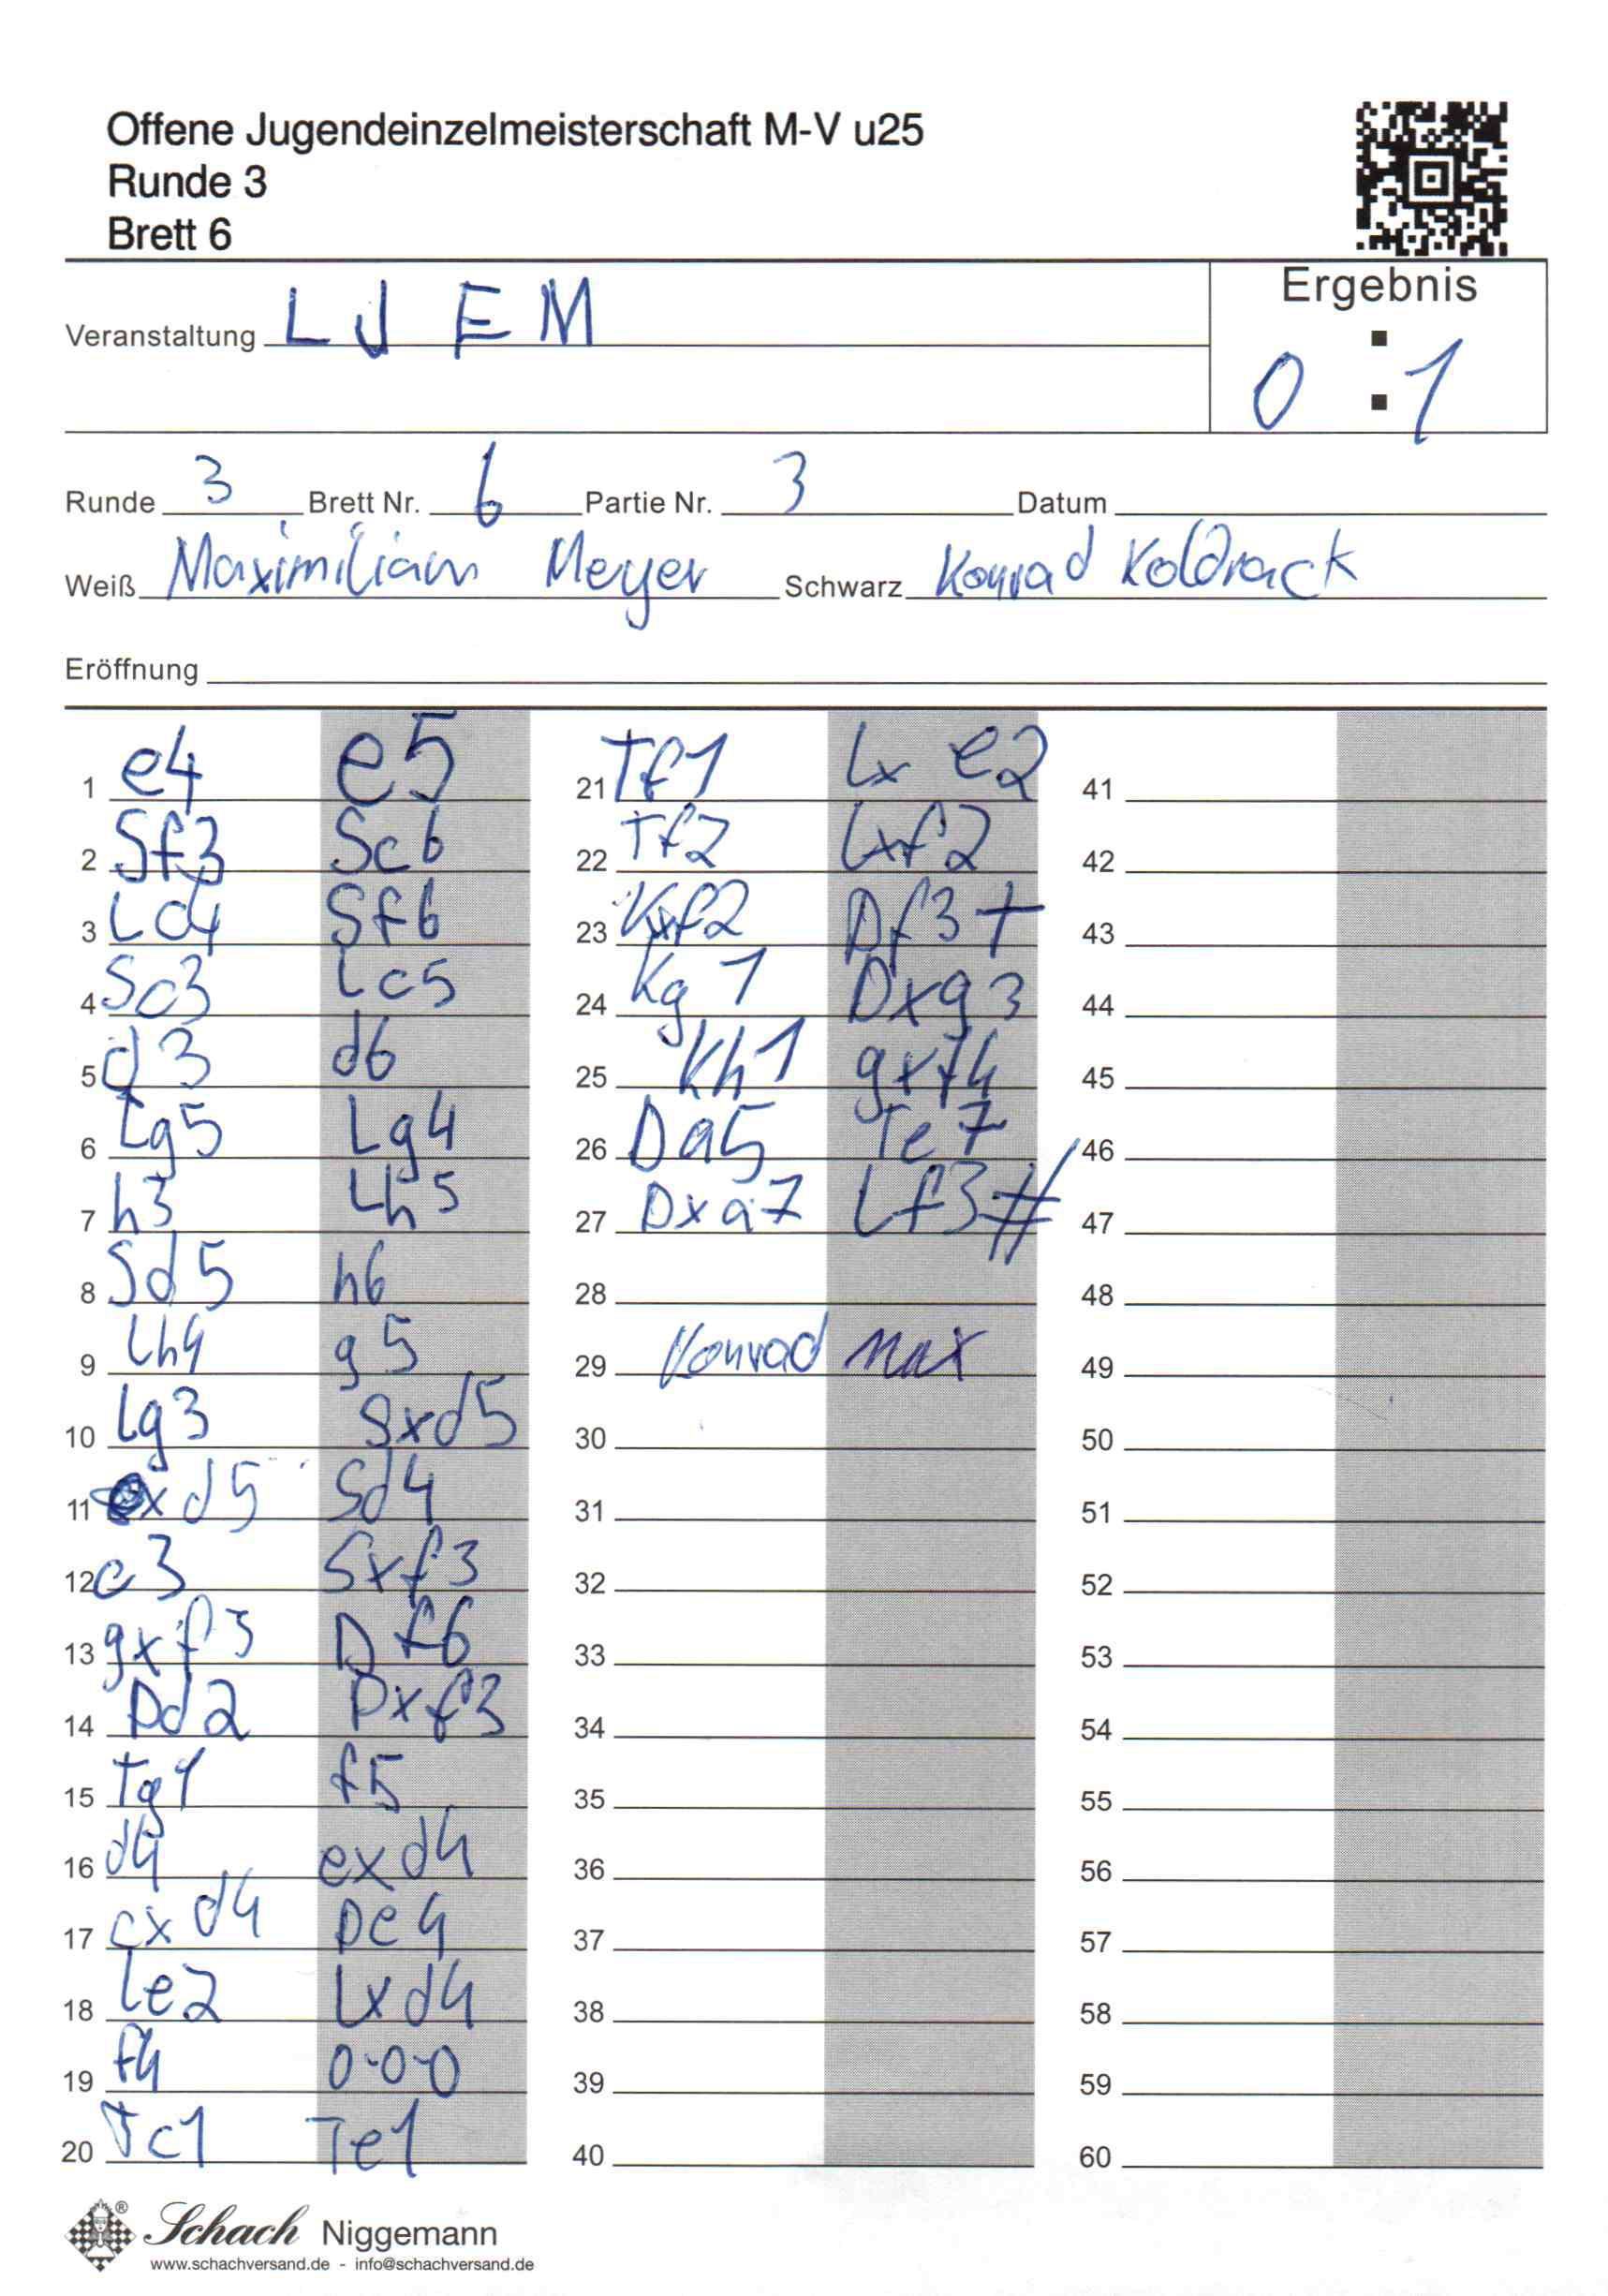 Offene Jugendeinzelmeisterschaft M-V u25
Runde 3
Brett 6
Ergebnis
Veranstaltung L J E M
0 : 1
Runde 3 Brett Nr. 6 Partie Nr. 3 Datum
Weiß Maximilian Meyer Schwarz Konrad Koldrack
Eröffnung
1 e4 e5
2 Sf3 Sc6
3 Lc4 Sf6
4 Sc3 Lc5
5 d3 d6
6 Lg5 Lg4
7 h3 Lh5
8 Sd5 h6
9 Lh4 g5
10 Lg3 Sxd5
11 exd5 Sd4
12 c3 Sxf3
13 gxf3 Df6
14 Dd2 Dxf3
15 Tg1 f5
16 d4 exd4
17 cxd4 De4
18 Le2 Lxd4
19 f4 0-0-0
20 Tc1 Te1
21 Tf1 Lxe2
22 Tf2 Lxf2
23 Kxf2 Df3+
24 Kg1 Dxg3
25 Kh1 gxf4
26 Da5 Te7
27 Dxa7 Lf3#
28
29 Konrad Max
30
31
32
33
34
35
36
37
38
39
40
41
42
43
44
45
46
47
48
49
50
51
52
53
54
55
56
57
58
59
60
Schach Niggemann
www.schachversand.de - info@schachversand.de